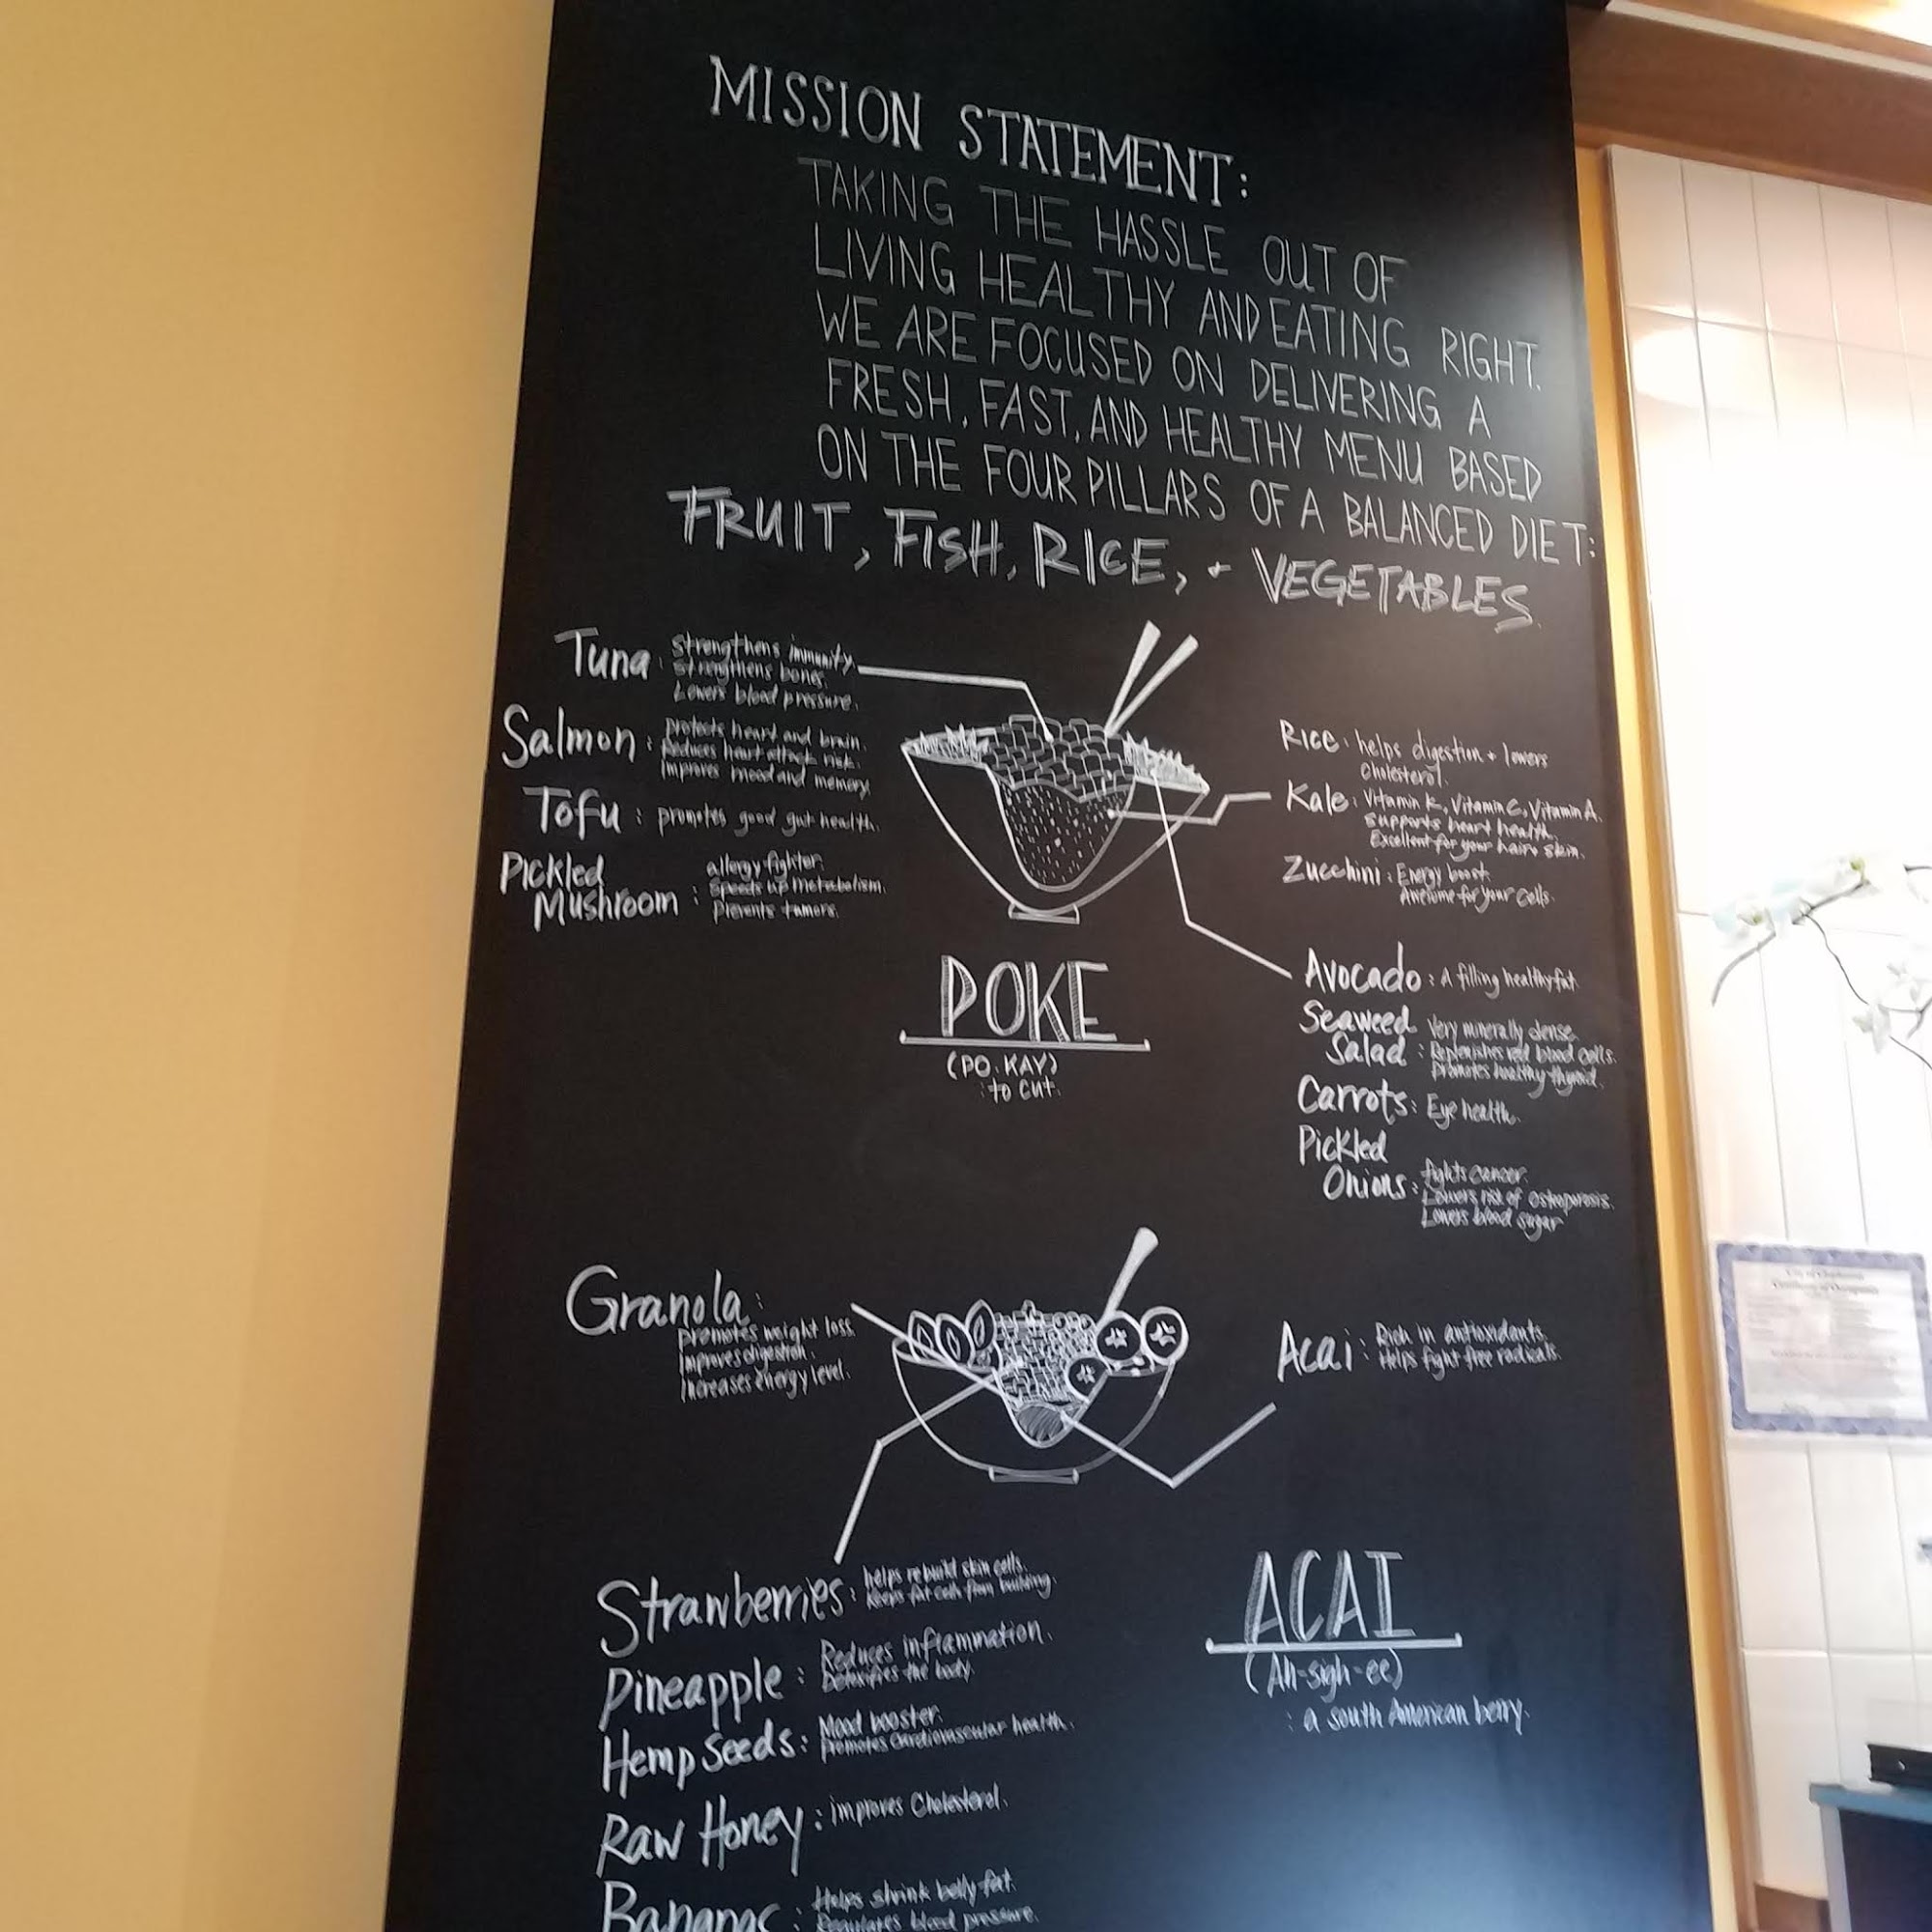 MISSION STATEMENT:
TAKING THE HASSLE OUT OF
LIVING HEALTHY AND EATING RIGHT.
WE ARE FOCUSED ON DELIVERING A
FRESH, FAST, AND HEALTHY MENU BASED
ON THE FOUR PILLARS OF A BALANCED DIET:
FRUIT, FISH, RICE, + VEGETABLES
Tuna: Strengthens immunity.
Strengthens bones.
Lowers blood pressure.
Salmon: protects heart and brain.
Reduces heart attack risk.
Improves mood and memory.
Tofu: promotes good gut health.
Pickled
Mushroom: allergy fighter.
Speeds up metabolism.
Prevents tumors.
Rice: helps digestion + lowers
Cholesterol.
Kale: Vitamin K, Vitamin C, Vitamin A.
Supports heart health.
Excellent for your hair + skin.
Zucchini: Energy boost.
Awesome for your cells.
Avocado: A filling healthy fat.
Seaweed
Salad: Very minerally dense.
Replenishes red blood cells.
Promotes healthy thyroid.
Carrots: Eye health.
Pickled
Onions: fights cancer.
Lowers risk of osteoporosis.
Lowers blood sugar
POKE
(PO.KAY)
: to cut.
Granola:
promotes weight loss.
Improves digestion.
Increases energy level.
Acai: Rich in antioxidants.
Helps fight free radicals.
Strawberries: helps rebuild skin cells.
Keeps fat cells from building.
Pineapple: Reduces inflammation.
Detoxifies the body.
Hemp Seeds: Mood booster.
promotes cardiovascular health.
Raw Honey: improves Cholesterol.
Bananas: Helps shrink belly fat.
Regulates blood pressure.
ACAI
(Ah-sigh-ee)
: a south American berry.